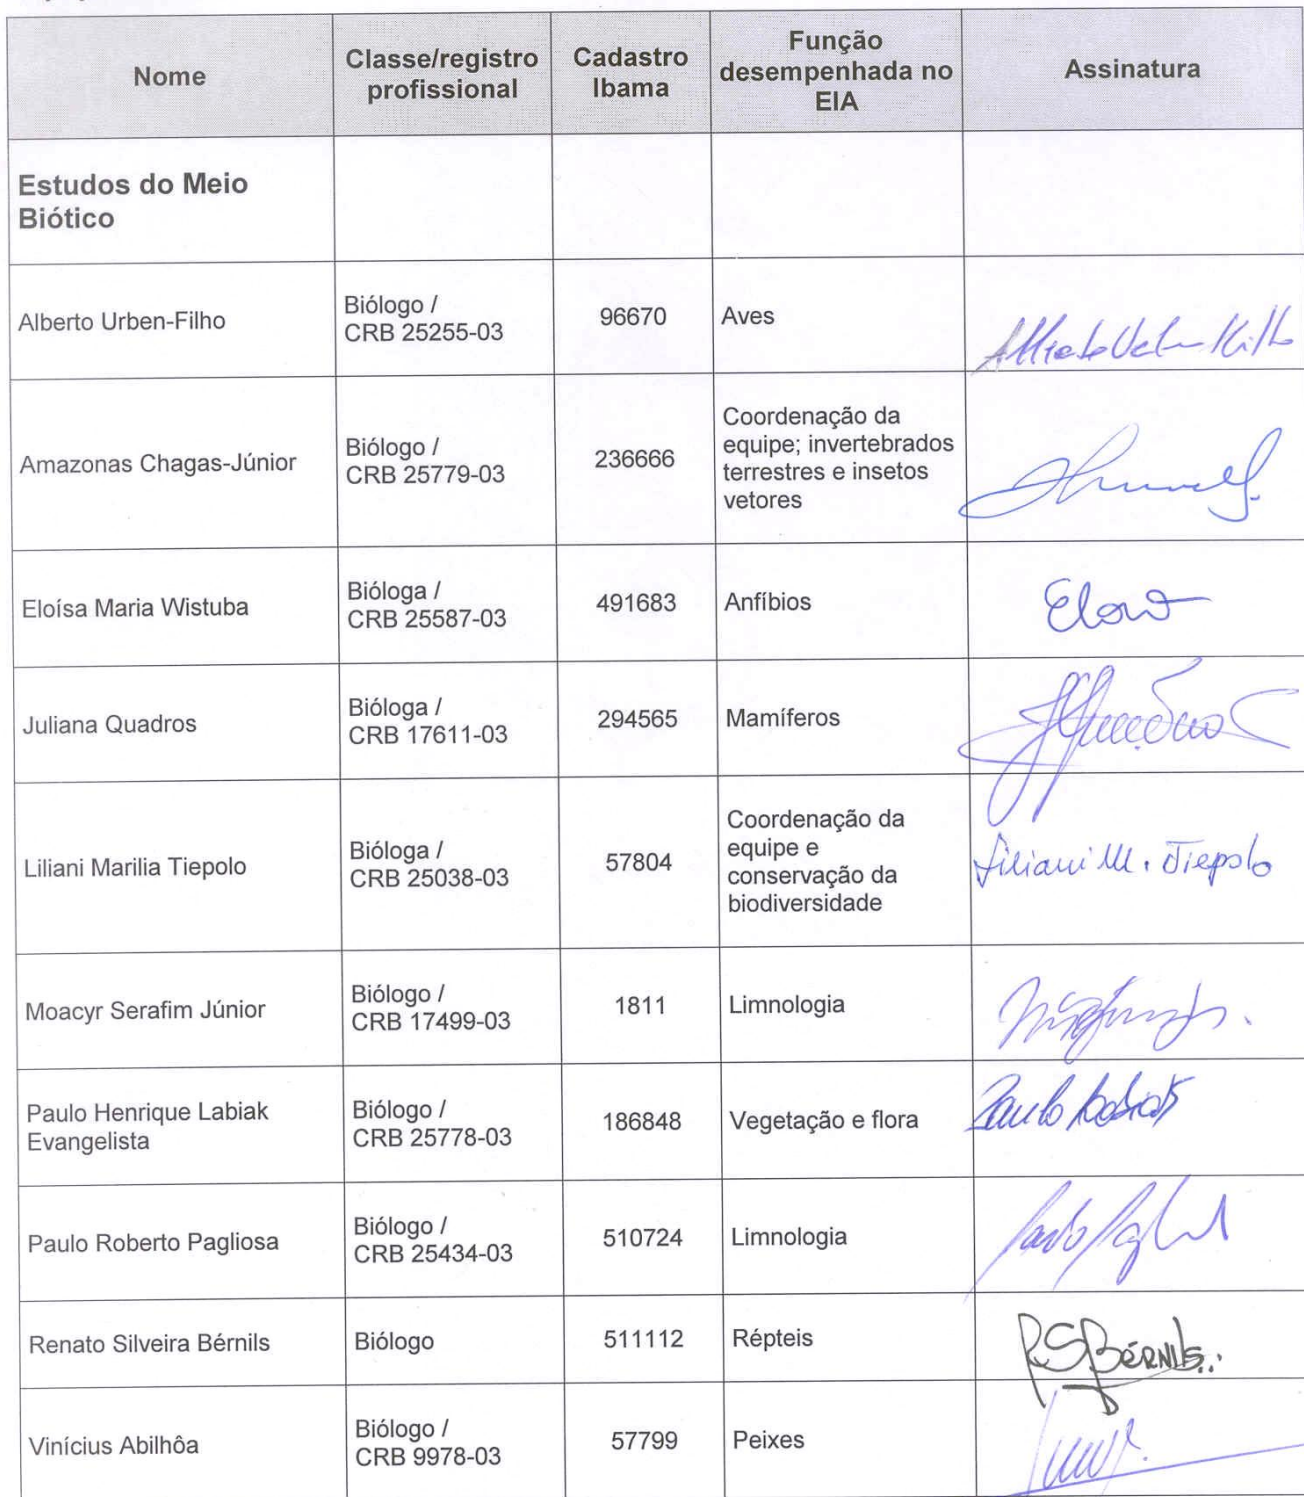 Nome
Classe/registro
profissional
Cadastro
Ibama
Função
desempenhada no
EIA
Assinatura
Estudos do Meio
Biótico
Alberto Urben-Filho
Biólogo /
CRB 25255-03
96670
Aves
Amazonas Chagas-Júnior
Biólogo /
CRB 25779-03
236666
Coordenação da
equipe; invertebrados
terrestres e insetos
vetores
Eloísa Maria Wistuba
Bióloga /
CRB 25587-03
491683
Anfíbios
Juliana Quadros
Bióloga /
CRB 17611-03
294565
Mamíferos
Liliani Marilia Tiepolo
Bióloga /
CRB 25038-03
57804
Coordenação da
equipe e
conservação da
biodiversidade
Liliani M. Tiepolo
Moacyr Serafim Júnior
Biólogo /
CRB 17499-03
1811
Limnologia
Paulo Henrique Labiak
Evangelista
Biólogo /
CRB 25778-03
186848
Vegetação e flora
Paulo Labiak
Paulo Roberto Pagliosa
Biólogo /
CRB 25434-03
510724
Limnologia
Renato Silveira Bérnils
Biólogo
511112
Répteis
RSBÉRNILS
Vinícius Abilhôa
Biólogo /
CRB 9978-03
57799
Peixes